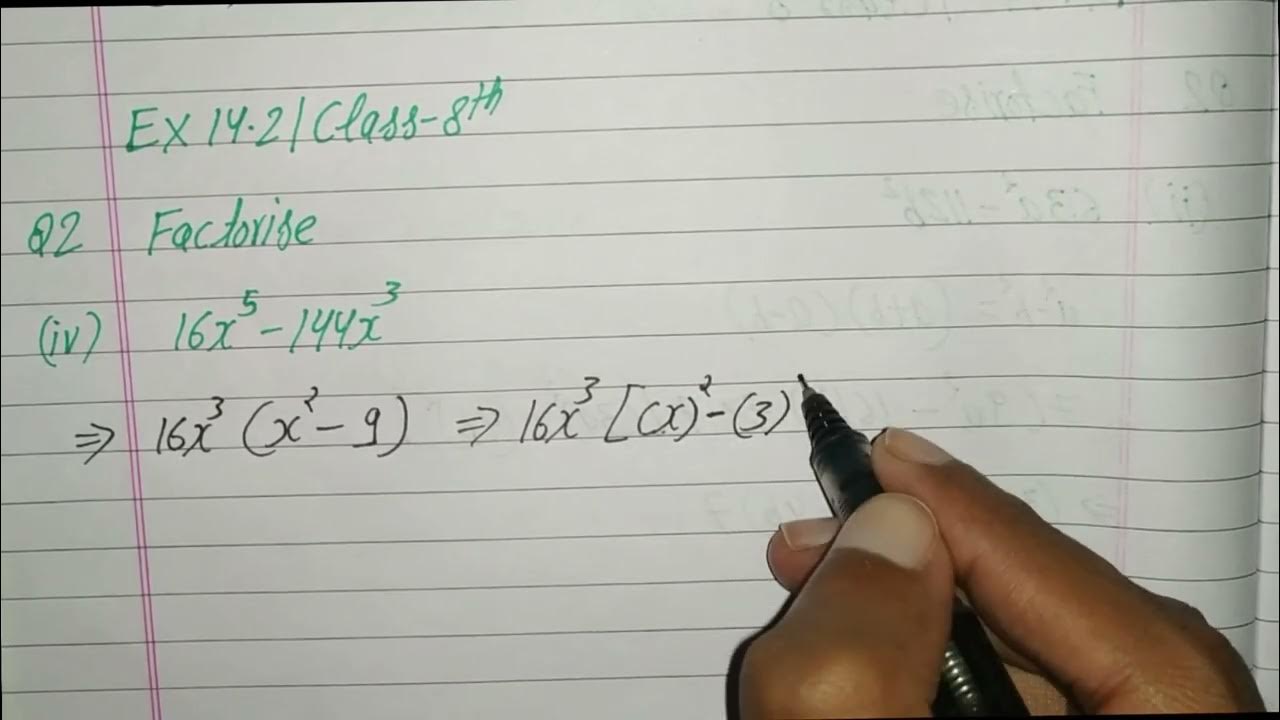 Ex 14.2/Class-8th
Q2 Factorise
(iv) 16x⁵ - 144x³
⇒ 16x³ (x² - 9) ⇒ 16x³ [(x)² - (3)